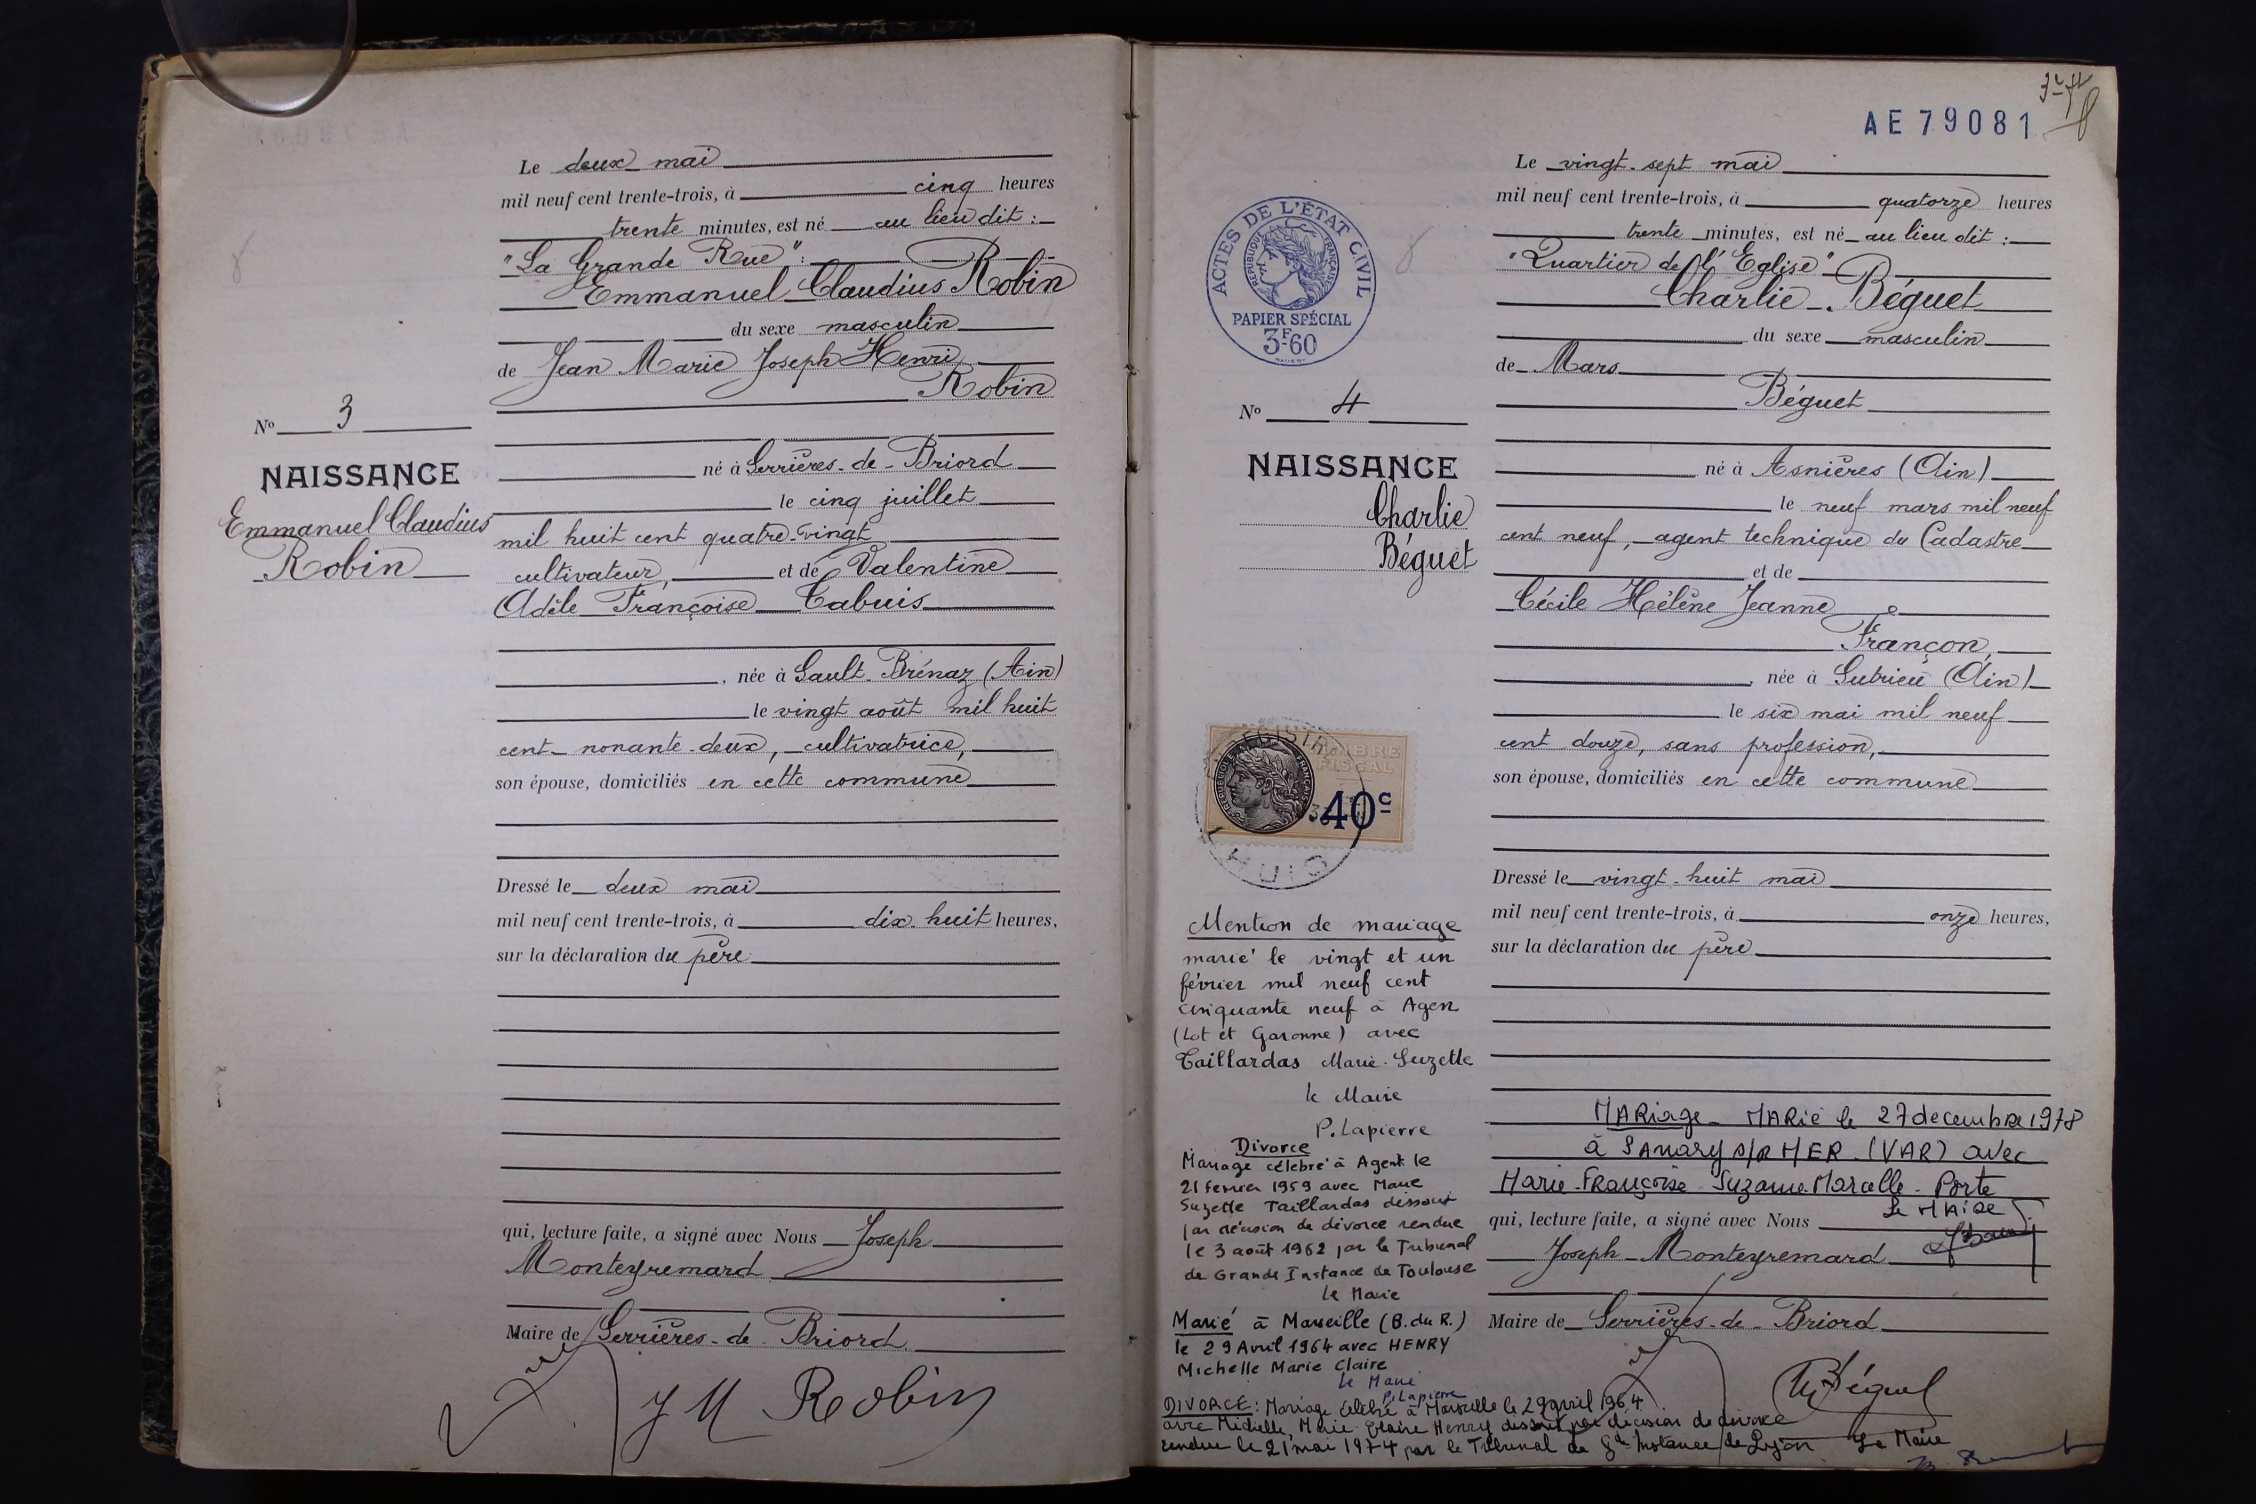 Le deux mai
mil neuf cent trente-trois, à cinq heures
trente minutes, est né au lieu dit :
"La Grande Rue" :
Emmanuel Claudius Robin
du sexe masculin
de Jean Marie Joseph Henri
Robin
né à Serrières-de-Briord
le cinq juillet
mil huit cent quatre-vingt
cultivateur, et de Valentine
Adèle Françoise Cabuis
, née à Sault-Brénaz (Ain)
le vingt août mil huit
cent nonante-deux, cultivatrice,
son épouse, domiciliés en cette commune
Dressé le deux mai
mil neuf cent trente-trois, à dix-huit heures,
sur la déclaration du père
qui, lecture faite, a signé avec Nous Joseph
Monteyremard
Maire de Serrières-de-Briord
J M Robin
No 3
NAISSANCE
Emmanuel Claudius
Robin
AE 79081
ACTES DE L'ÉTAT CIVIL
RÉPUBLIQUE FRANÇAISE
PAPIER SPÉCIAL
3F60
No 4
NAISSANCE
Charlie
Béguet
TIMBRE
FISCAL
40c
LHUIS
Mention de mariage
marié le vingt et un
février mil neuf cent
cinquante neuf à Agen
(Lot et Garonne) avec
Taillardas Marie-Suzette
le Maire
P. Lapierre
Divorce
Mariage célébré à Agent le
21 fevrier 1959 avec Marie
Suzette Taillardas dissout
par décision de divorce rendue
le 3 août 1962 par le Tribunal
de Grande Instance de Toulouse
le Maire
Marié à Marseille (B. du R.)
le 29 Avril 1964 avec HENRY
Michelle Marie Claire
le Maire
P. Lapierre
DIVORCE : Mariage célébré à Marseille le 29 avril 1964
avec Michelle, Marie Claire Henry dissout par décision de divorce
rendue le 21 mai 1974 par le Tribunal de Gde Instance de Lyon Le Maire
Le vingt-sept mai
mil neuf cent trente-trois, à quatorze heures
trente minutes, est né au lieu dit :
"Quartier de l'Eglise"
Charlie Béguet
du sexe masculin
de Mars
Béguet
né à Asnières (Ain)
le neuf mars mil neuf
cent neuf, agent technique du Cadastre
et de
Cécile Hélène Jeanne
Françon,
, née à Lutrieu (Ain)
le six mai mil neuf
cent douze, sans profession,
son épouse, domiciliés en cette commune
Dressé le vingt-huit mai
mil neuf cent trente-trois, à onze heures,
sur la déclaration du père
MARiage - MARié le 27 decembre 1978
à SANARY S/R MER (VAR) avec
Marie-Françoise Suzanne Marcelle Porte
Le MAiRE
qui, lecture faite, a signé avec Nous
Joseph Monteyremard
Maire de Serrières-de-Briord
M Béguet